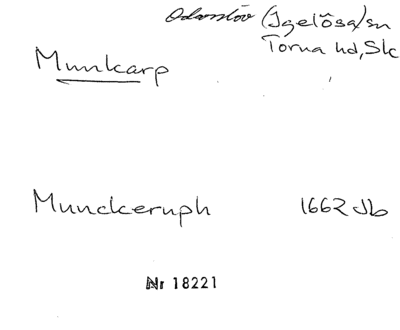 Odarslöv (Igelösa) sn
Torna hd, Sk
Munkarp
Munckeruph 1662 Jb
Nr 18221